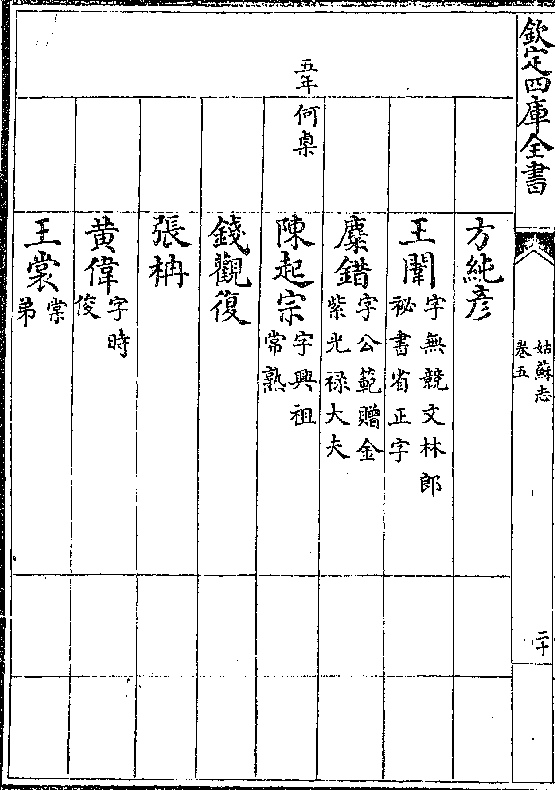 欽定四庫全書
姑蘇志
卷五
二十
方純彦
王闈 字無競文林郎
祕書省正字
麋錯 字公範贈金
紫光禄大夫
五年 何㮚 陳起宗 字興祖
常熟
錢觀復
張柟
黄偉 字時
俊
王裳 棠
弟